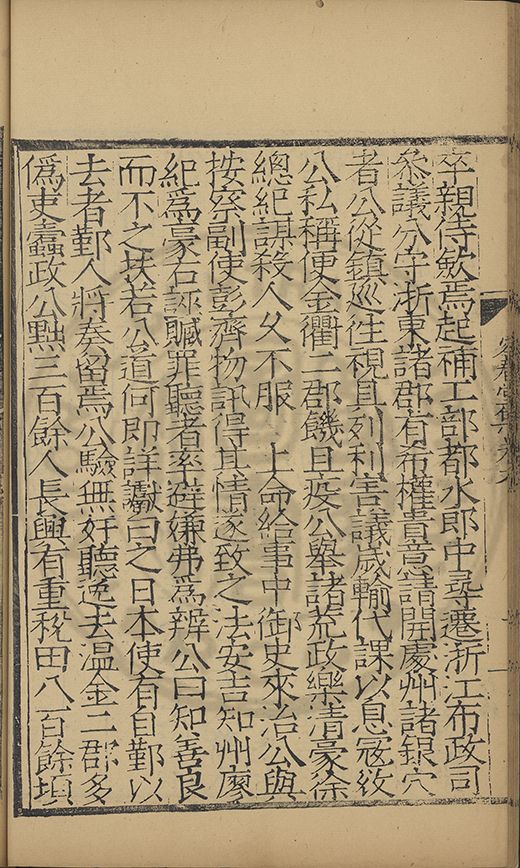 卒親侍歛焉起補工部都水郎中尋遷浙江布政司
叅議分守浙東諸郡有希權貴意請開處州諸銀穴
者公從鎮廵徃視具列利害議歲輸代課以息宼攽
公私稱便金衢二郡饑且疫公舉諸荒政樂清豪徐
總紀謀殺人乆不服 上命給事中御史來治公與
按察副使彭齊物訊得其情遂致之法安吉知州廖
紀爲豪右誣贓罪聽者率避嫌弗爲辨公曰知善良
而不之扶若公道何即詳讞白之日本使有自鄞以
去者鄞人將奏留焉公驗無奸聽逸去溫金二郡多
僞吏蠧政公黜三百餘人長興有重稅田八百餘頃